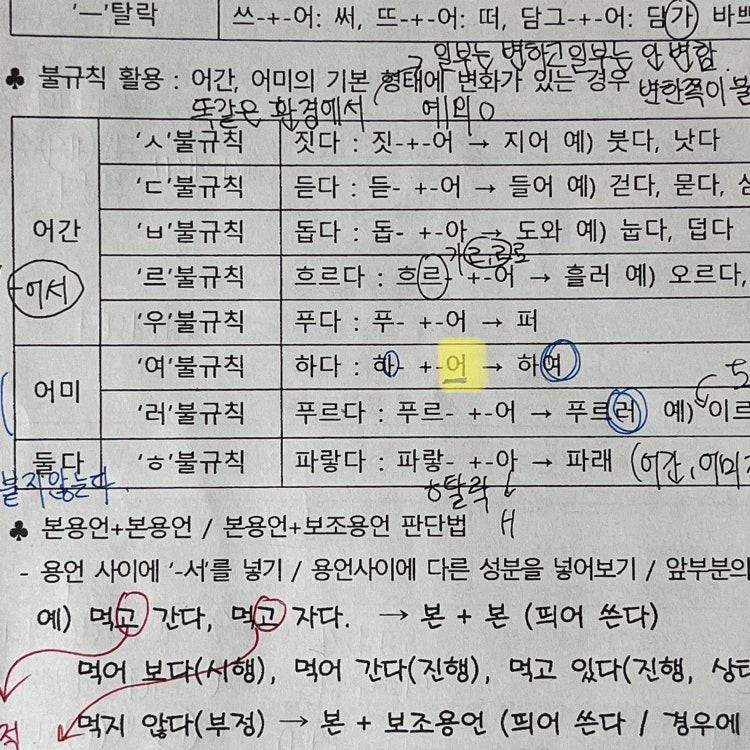 'ㅡ'탈락 쓰-+-어: 써, 뜨-+-어: 떠, 담그-+-어: 담가 바쁘
일부는 변하고 일부는 안 변함.
♣ 불규칙 활용 : 어간, 어미의 기본 형태에 변화가 있는 경우 변한쪽이 불
똑같은 환경에서 예외 O
'ㅅ'불규칙 짓다 : 짓-+-어 → 지어 예) 붓다, 낫다
'ㄷ'불규칙 듣다 : 듣- +-어 → 들어 예) 걷다, 묻다,
어간 'ㅂ'불규칙 돕다 : 돕- +-아 → 도와 예) 눕다, 덥다
-어서 '르'불규칙 흐르다 : 흐르- +-어 → 흘러 예) 오르다,
'우'불규칙 푸다 : 푸- +-어 → 퍼
어미 '여'불규칙 하다 : 하- +-어 → 하여
'러'불규칙 푸르다 : 푸르- +-어 → 푸르러 예) 이르
둘다 'ㅎ'불규칙 파랗다 : 파랗- +-아 → 파래 (어간, 어미
붙지않는다 ㅎ탈락 ㅐ
♣ 본용언+본용언 / 본용언+보조용언 판단법
- 용언 사이에 '-서'를 넣기 / 용언사이에 다른 성분을 넣어보기 / 앞부분의
예) 먹고 간다, 먹고 자다. → 본 + 본 (띄어 쓴다)
먹어 보다(시행), 먹어 간다(진행), 먹고 있다(진행, 상태
먹지 않다(부정) → 본 + 보조용언 (띄어 쓴다 / 경우에